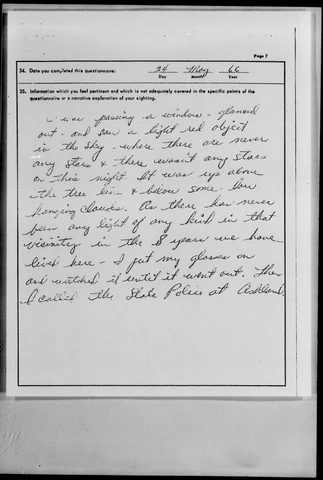 Page 7
34. Date you completed this questionnaire: 24 May 66
Day Month Year
35. Information which you feel pertinent and which is not adequately covered in the specific points of the
questionnaire or a narrative explanation of your sighting.
I was passing a window - glanced
out - and saw a light red object
in the sky - where there are never
any stars & there wasn't any stars
on this night. It was up above
the tree line & below some low
hanging clouds. As there has never
been any light of any kind in that
vicinity in the 8 years we have
lived here - I put my glasses on
and watched it until it went out. Then
I called the State Police at Ashland